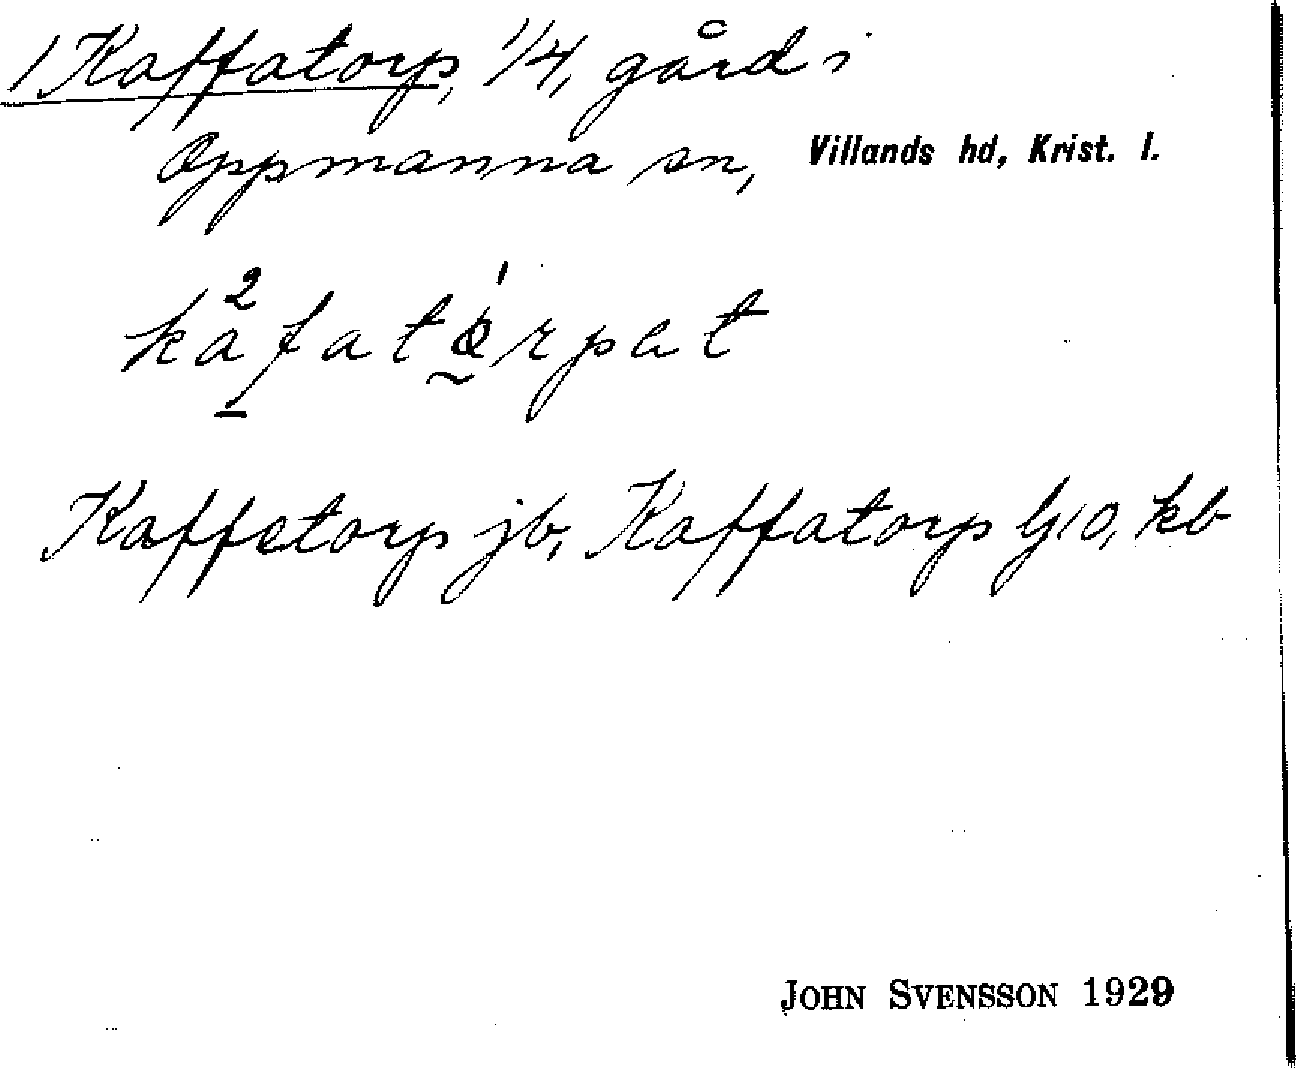 1 Kaffatorp, 1/4, gård i
Oppmanna sn, Villands hd, Krist. l.
kafatorpet
Kaffetorp jb, Kaffatorp G10, kb
JOHN SVENSSON 1929